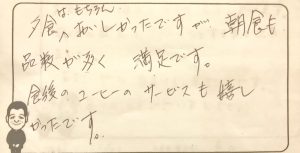 夕食はもちろんおいしかったですが、朝食も
品数が多く 満足です。
食後のコーヒーのサービスも嬉し
かったです。